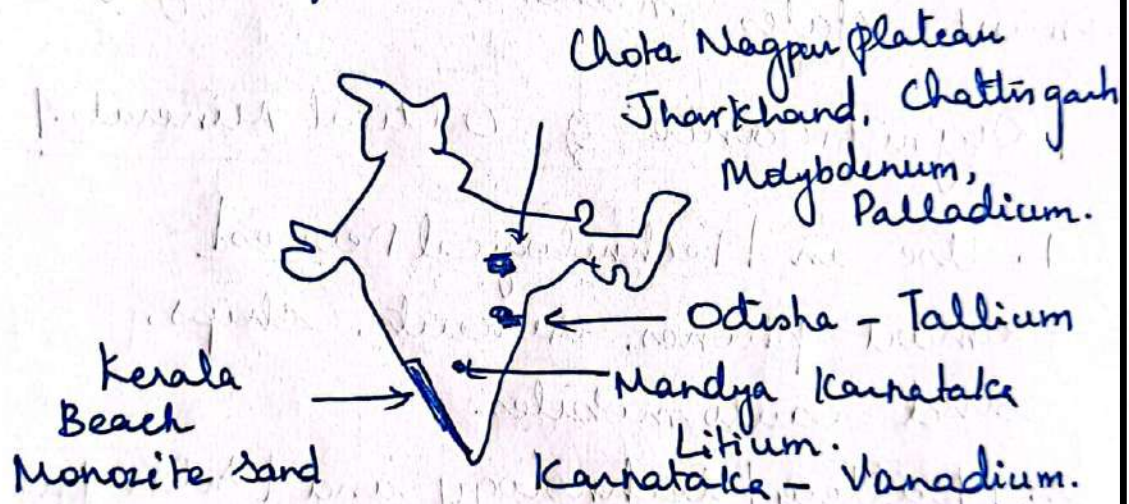 Chota Nagpur plateau
Jharkhand, Chattisgarh
Molybdenum,
Palladium.
Odisha - Tallium
Mandya Karnataka
Litium.
Karnataka - Vanadium.
Kerala
Beach
Monozite Sand